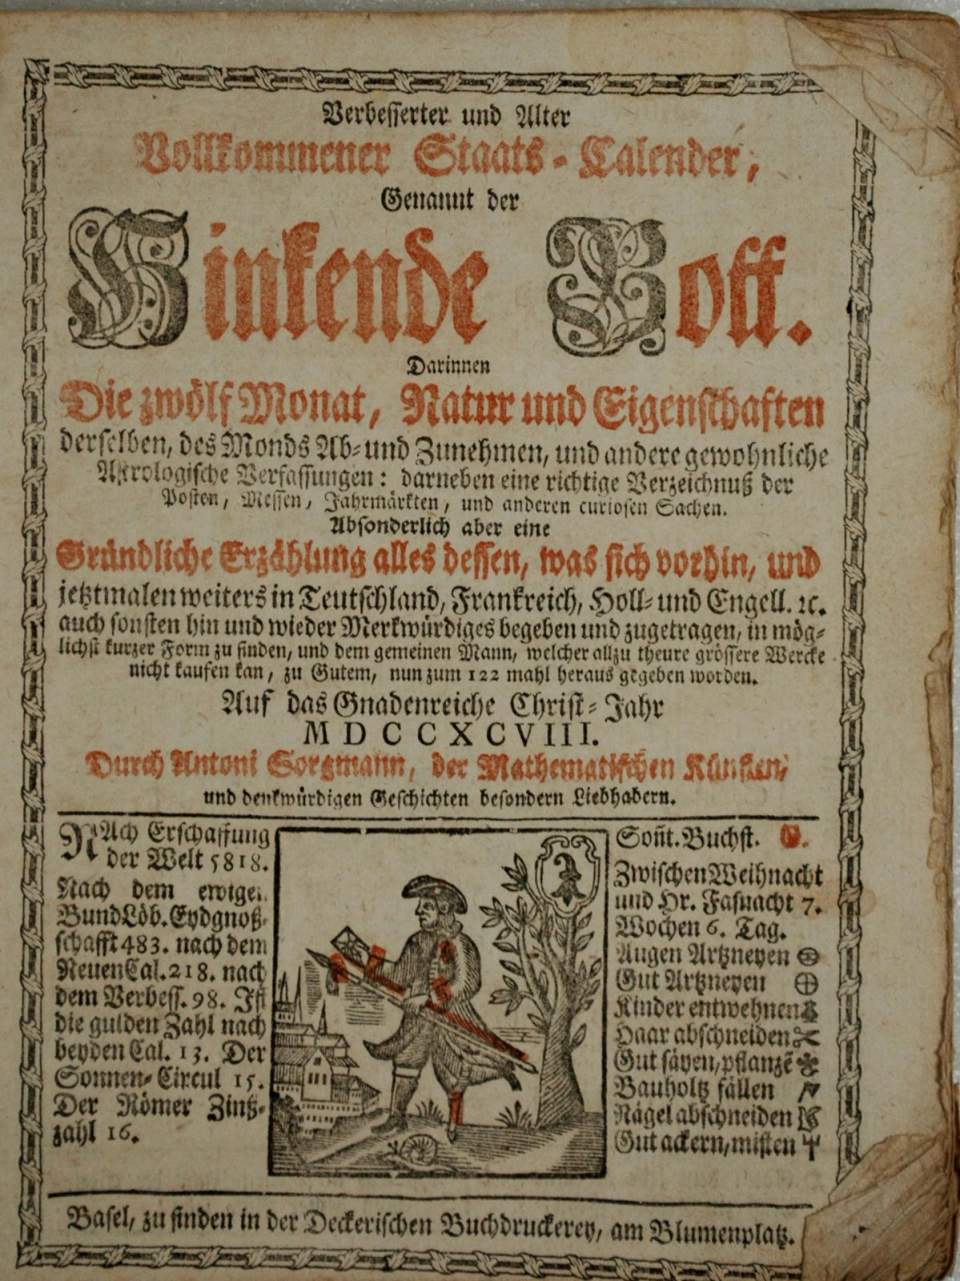 Verbesserter und Alter
Vollkommener Staats-Calender,
Genannt der
Hinkende Bott.
Darinnen
Die zwölf Monat, Natur und Eigenschaften
derselben, des Monds Ab- und Zunehmen, und andere gewohnliche
Astrologische Verfassungen: darneben eine richtige Verzeichnuß der
Posten, Messen, Jahrmärkten, und anderen curiosen Sachen.
Absonderlich aber eine
Gründliche Erzählung alles dessen, was sich vorhin, und
jetztmalen weiters in Teutschland, Frankreich, Holl- und Engell. ꝛc.
auch sonsten hin und wieder Merkwürdiges begeben und zugetragen, in mög-
lichst kurzer Form zu finden, und dem gemeinen Mann, welcher allzu theure grössere Wercke
nicht kaufen kan, zu Gutem, nun zum 122 mahl heraus gegeben worden.
Auf das Gnadenreiche Christ-Jahr
MDCCXCVIII.
Durch Antoni Sorgmann, der Mathematischen Künsten,
und denkwürdigen Geschichten besondern Liebhabern.
NAch Erschaffung
der Welt 5818.
Nach dem ewigen
Bund Löb. Eydgnoß-
schafft 483. nach dem
Neuen Cal. 218. nach
dem Verbess. 98. Ist
die gulden Zahl nach
beyden Cal. 13. Der
Sonnen-Circul 15.
Der Römer Zinß-
zahl 16.
Soñt. Buchst. G.
Zwischen Weihnacht
und Hr. Fasnacht 7.
Wochen 6. Tag.
Augen Artzneyen
Gut Artzneyen
Kinder entwehnen
Haar abschneiden
Gut säyen, pflanzẽ
Bauholtz fällen
Nägel abschneiden
Gut ackern, misten
Basel, zu finden in der Deckerischen Buchdruckerey, am Blumenplatz.